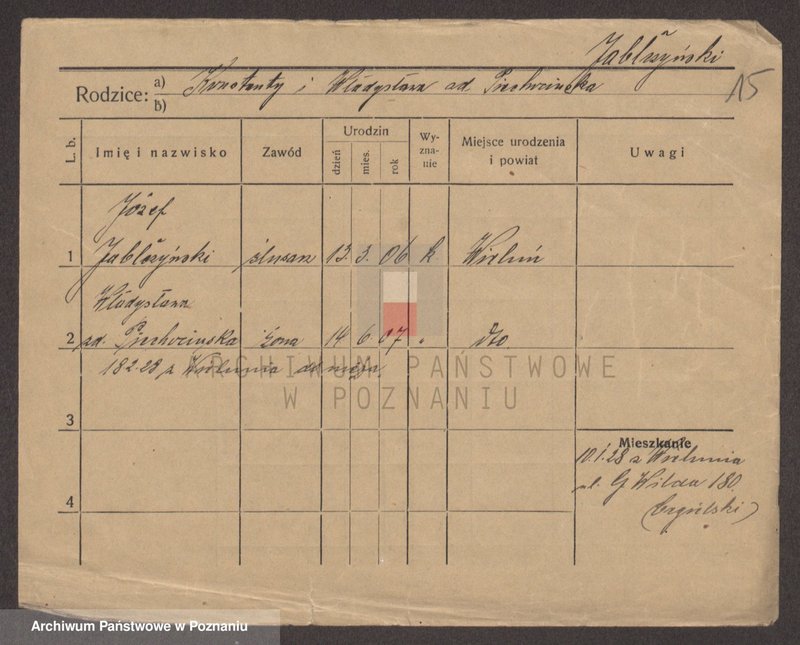 Jabłczyński
15
Rodzice: a) b) Konstanty i Władysława
L. b.
Imię i nazwisko
Zawód
Urodzin
dzień
mies.
rok
Wy-
zna-
nie
Miejsce urodzenia
i powiat
Uwagi
Józef
1 Jabłczyński ślusarz 13. 3. 06 k Wieluń
Władysława
2 żona 14 6. 07 „ dto
z Wielunia do męża
ARCHIWUM PAŃSTWOWE
W POZNANIU
3
Mieszkanie
10.1.28 z Wielunia
ul. G Wilda 180
4
Archiwum Państwowe w Poznaniu